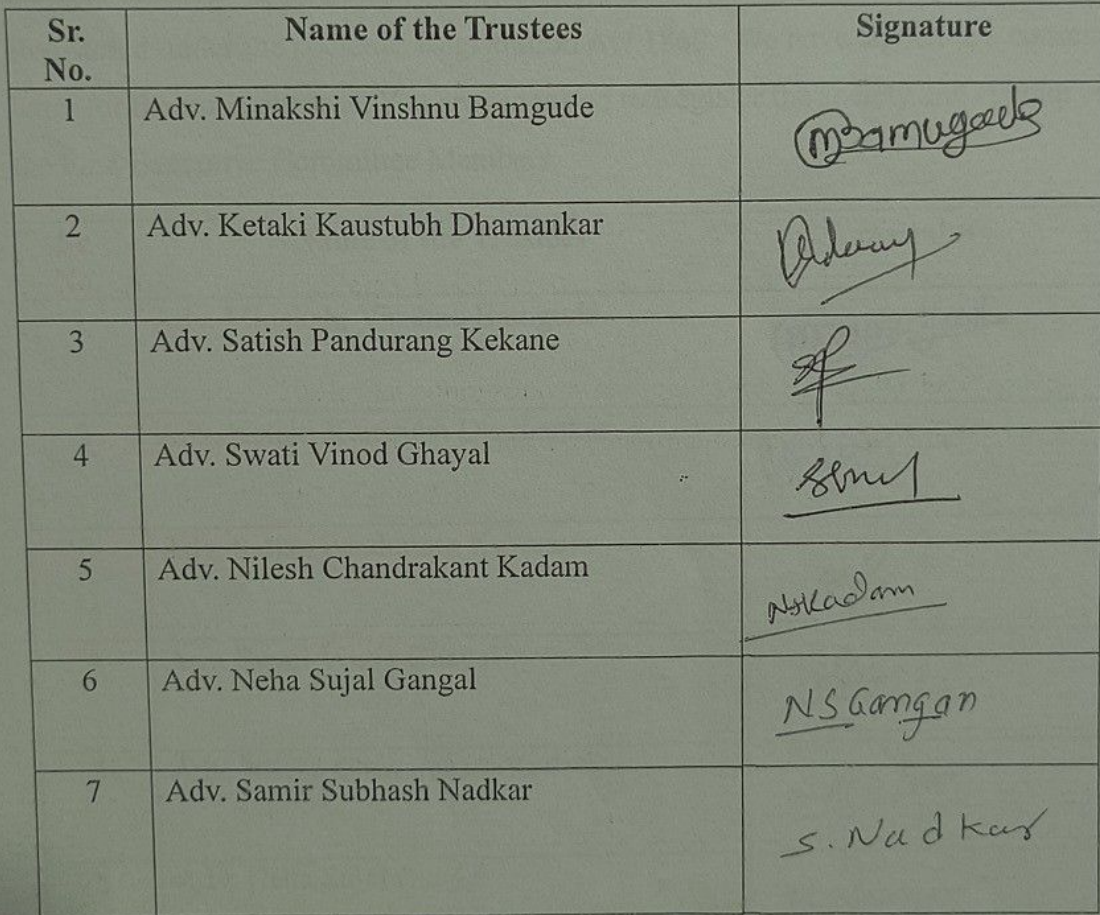 Sr. No. Name of the Trustees Signature
1 Adv. Minakshi Vinshnu Bamgude
2 Adv. Ketaki Kaustubh Dhamankar
3 Adv. Satish Pandurang Kekane
4 Adv. Swati Vinod Ghayal
5 Adv. Nilesh Chandrakant Kadam NKadam
6 Adv. Neha Sujal Gangal NSGangan
7 Adv. Samir Subhash Nadkar S. Nadkar